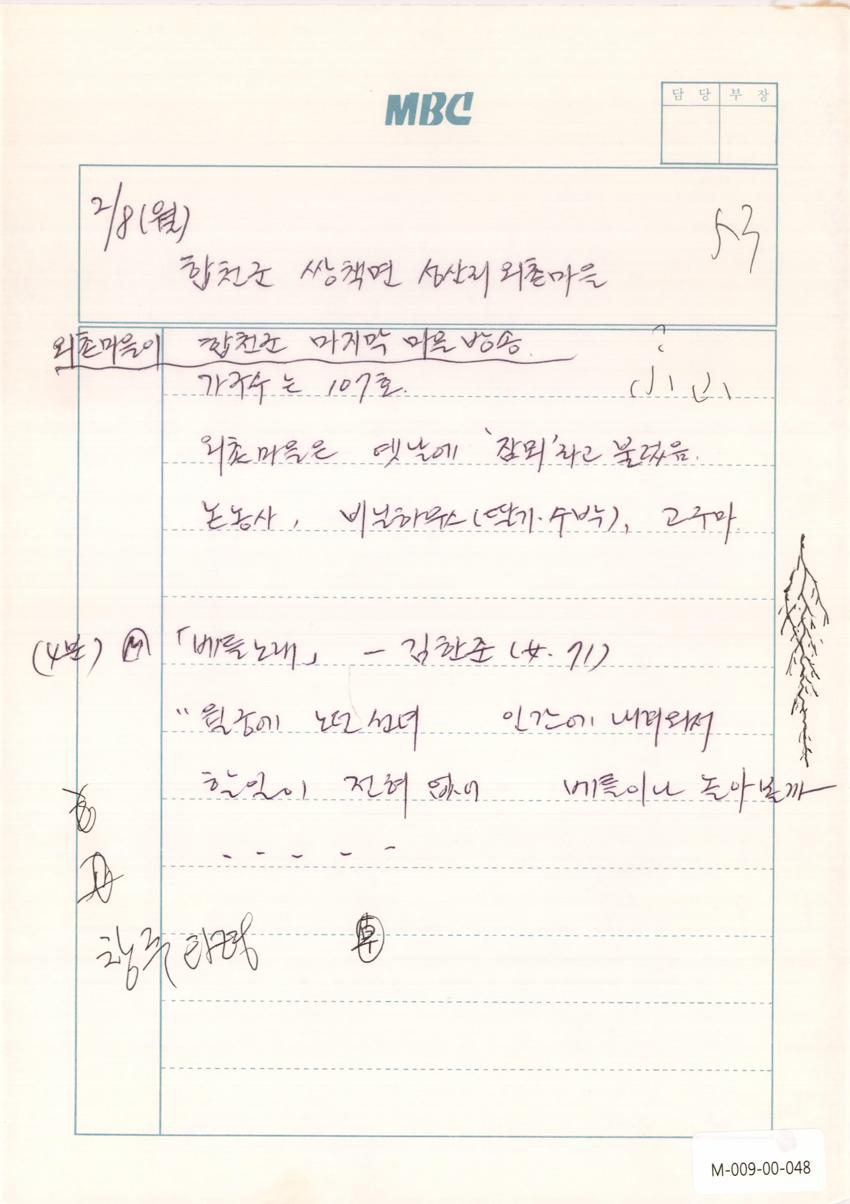 MBC
담당 부장
2/8(월)
합천군 쌍책면 성산리 외촌마을
외촌마을이 합천군 마지막 마을 방송.
가구수는 107호.
외촌마을은 옛날에 '잠뫼'라고 불렀음.
논농사, 비닐하우스(딸기·수박), 고구마
(4분) Ⓜ 「베틀노래」 - 김한준 (女. 71)
"월궁에 노던 선녀 인간에 내려와서
할일이 전혀 없어 베틀이나 놓아볼까
- - - - -
M-009-00-048